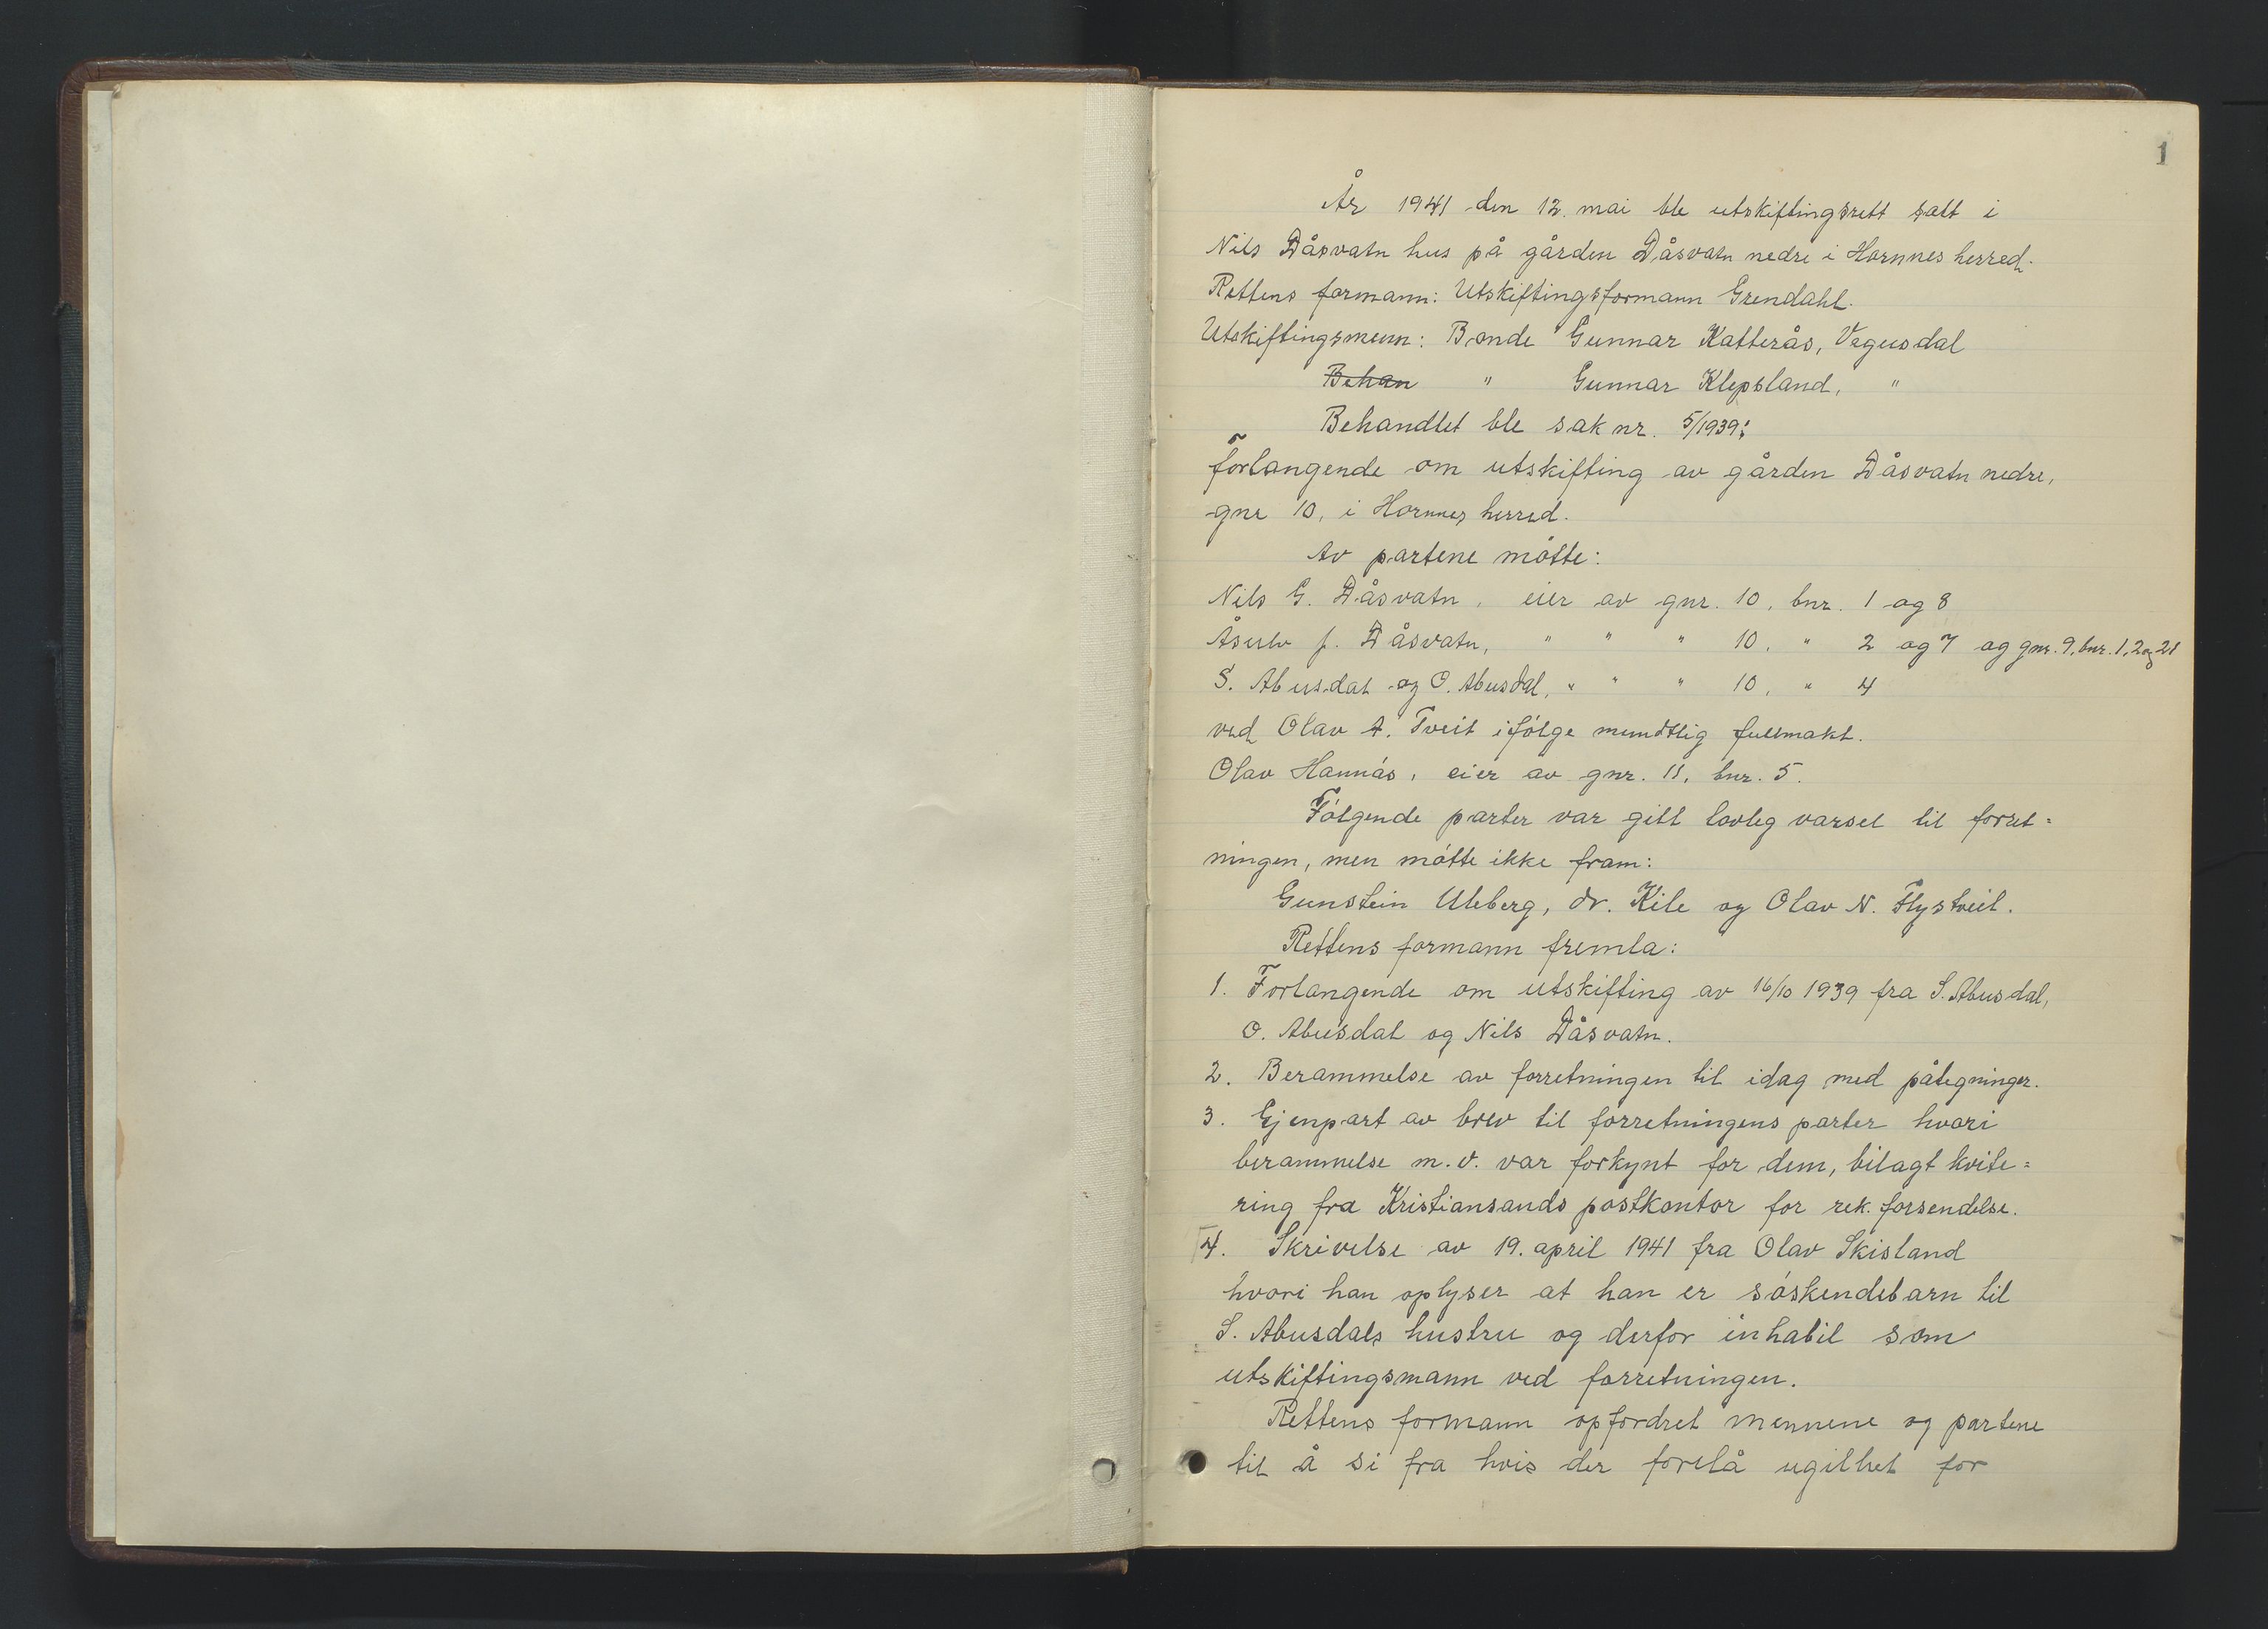 1
År 1941 den 12. mai ble utskiftingsrett satt i
Nils Dåsvatn hus på gården Dåsvatn nedre i Hornnes herred.
Rettens formann: Utskiftingsformann Grendahl.
Utskiftingsmenn: Bonde Gunnar Katterås, Vegusdal
Behan " Gunnar Klepsland, "
Behandlet ble sak nr. 5/1939:
Forlangende om utskifting av gården Dåsvatn nedre,
gnr 10, i Hornnes herred.
Av partene møtte:
Nils G. Dåsvatn, eier av gnr. 10, bnr. 1 og 8
Åsulv J. Dåsvatn, " " " 10, " 2 og 7 og gnr. 9, bnr. 1, 2 og 21
S. Abusdal og O. Abusdal, " " " 10, " 4
ved Olav A. Tveit ifølge mundtlig fullmakt.
Olav Hannås, eier av gnr. 11, bnr. 5.
Følgende parter var gitt lovleg varsel til forret=
ningen, men møtte ikke fram:
Gunstein Uleberg, dr. Kile og Olav N. Flystveit.
Rettens formann fremla:
1. Forlangende om utskifting av 16/10 1939 fra S. Abusdal,
O. Abusdal og Nils Dåsvatn.
2. Berammelse av forretningen til idag med påtegninger.
3. Gjenpart av brev til forretningens parter hvori
berammelse m.v. var forkynt for dem, bilagt kvite=
ring fra Kristiansands postkontor for rek. forsendelse.
4. Skrivelse av 19. april 1941 fra Olav Skisland
hvori han oplyser at han er søskendebarn til
S. Abusdals hustru og derfor inhabil som
utskiftingsmann ved forretningen.
Rettens formann opfordret mennene og partene
til å si fra hvis der forelå ugilhet for